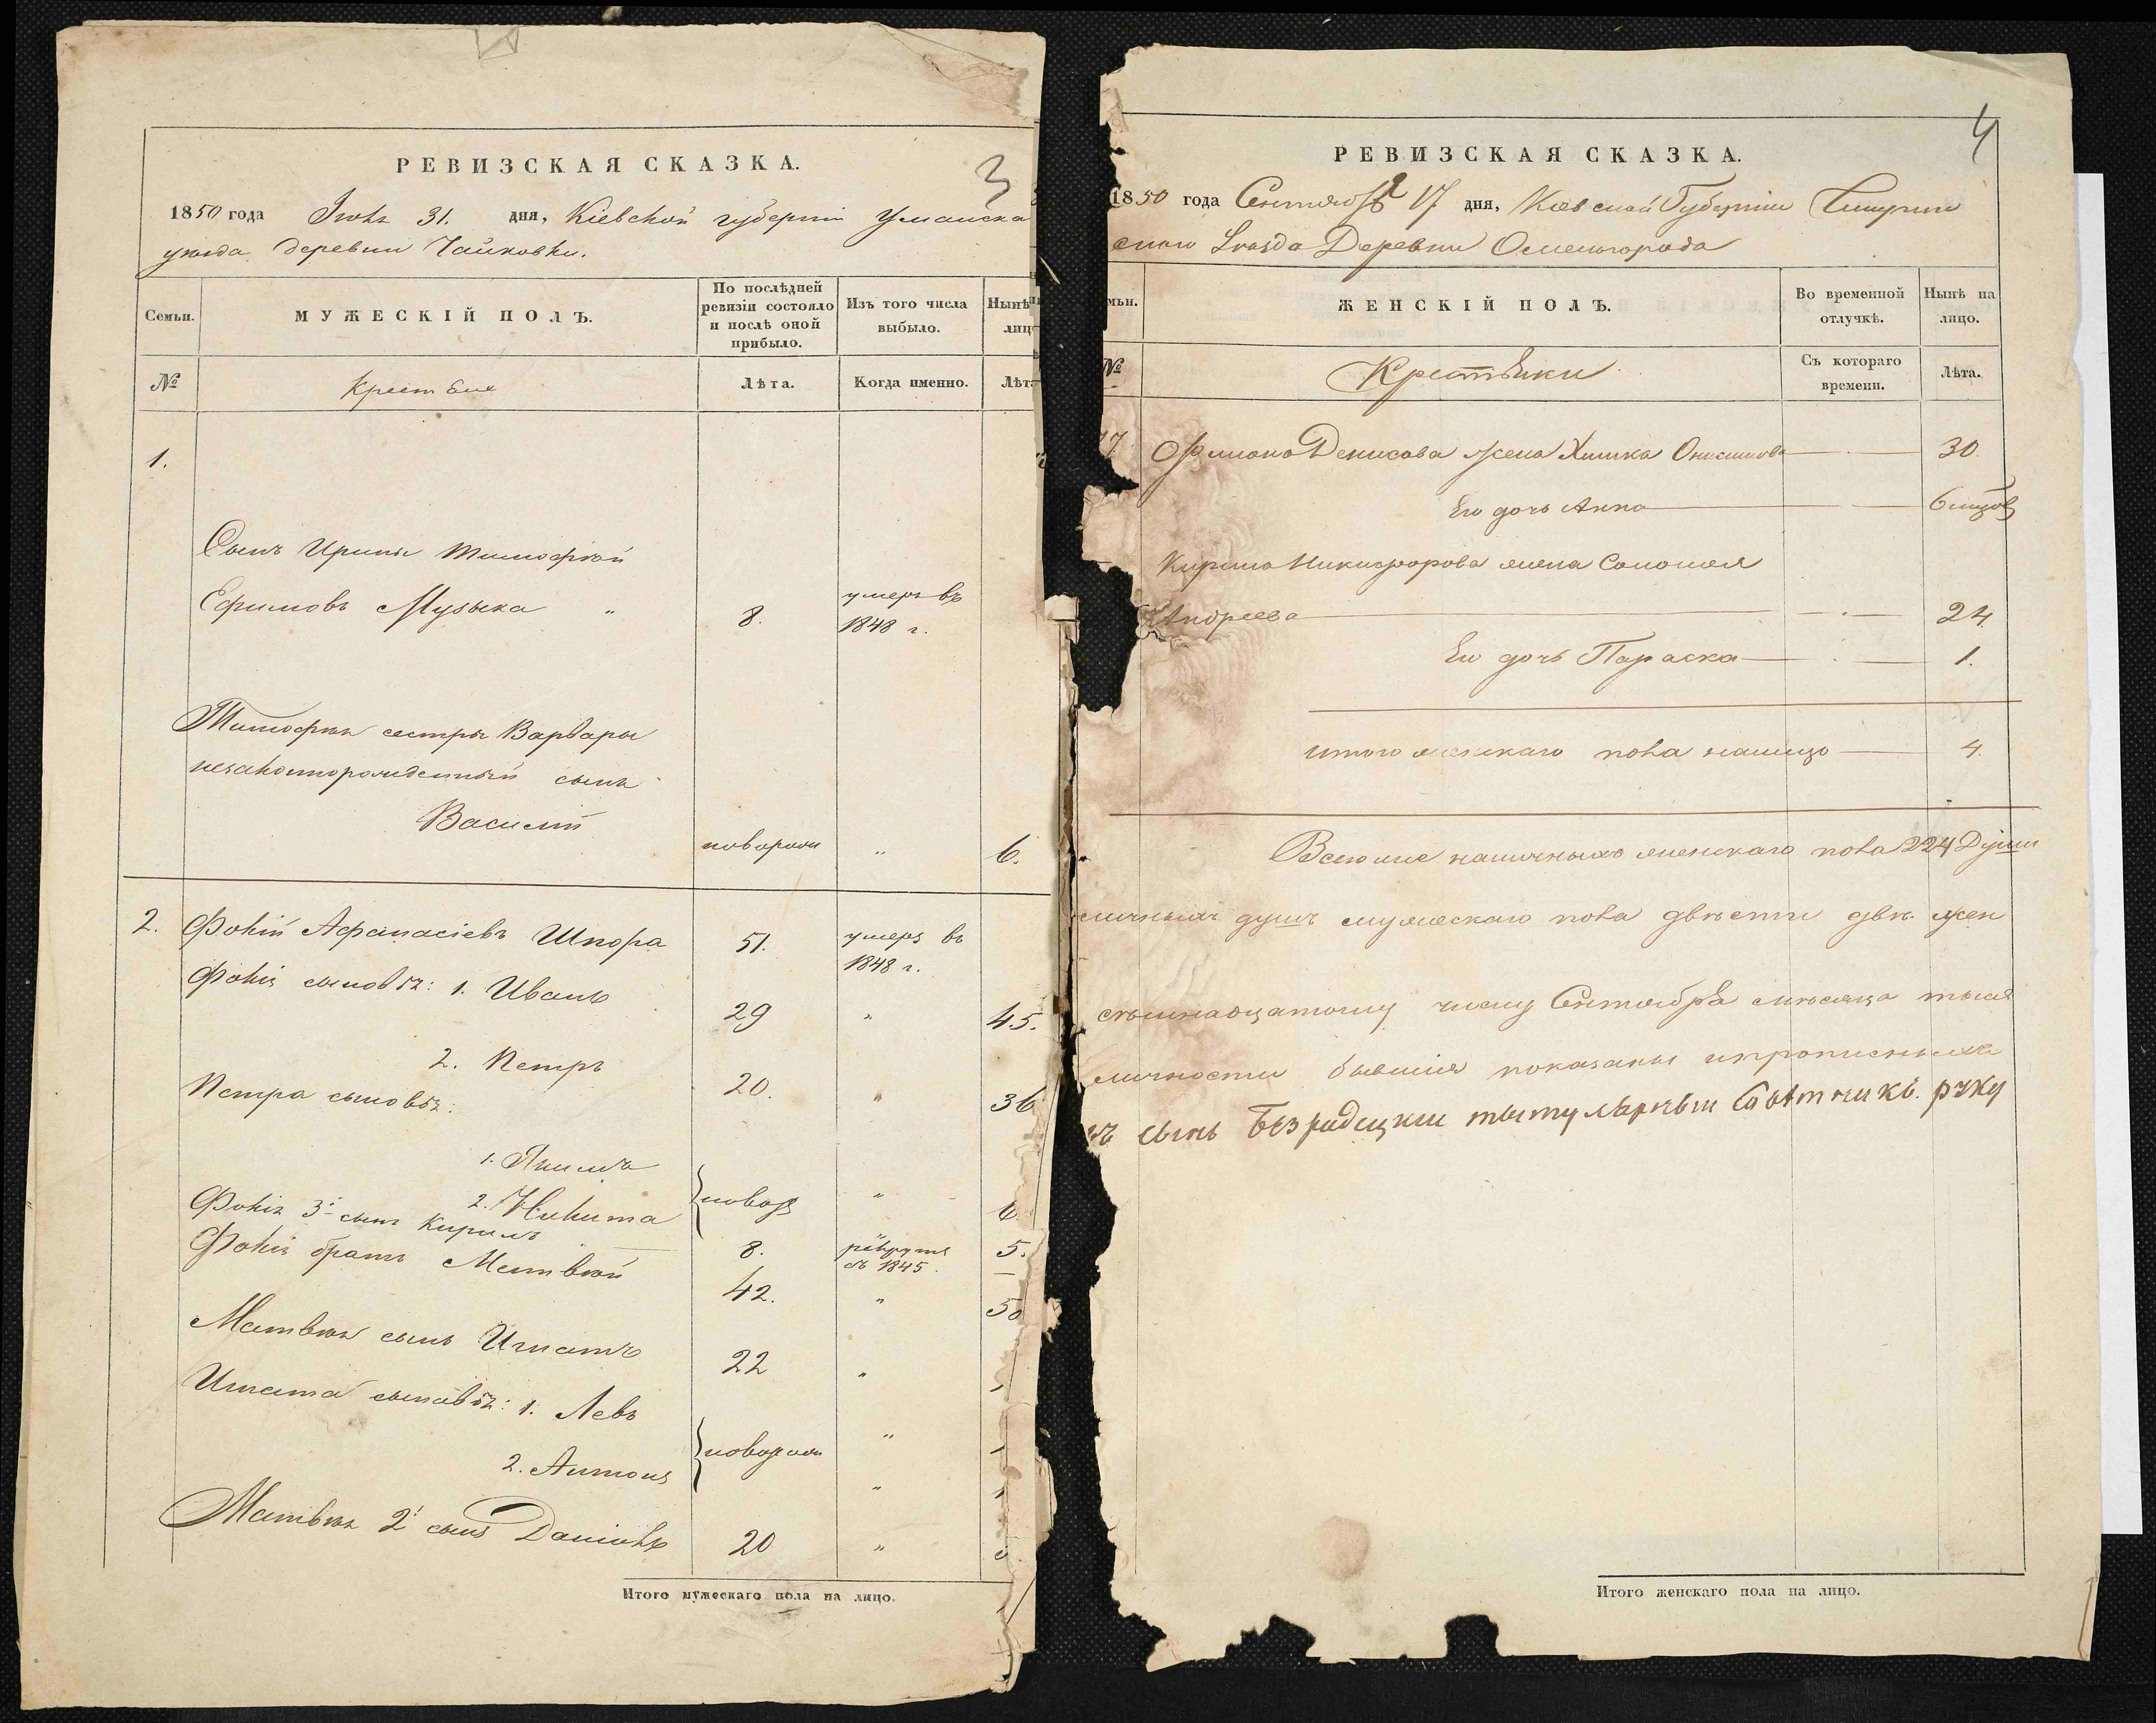 РЕВИЗСКАЯ СКАЗКА.
3
1850 года Іюль 31. дня, Кіевской губерніи Уманска
уѣзда деревни Чайковки.
Семьи.
МУЖЕСКІЙ ПОЛЪ.
По послѣдней ревизіи состояло и послѣ оной прибыло.
Изъ того числа выбыло.
Нынѣ лицо
№
Крестьяне
Лѣта.
Когда именно.
Лѣта
1.
Сынъ Ирины Тимофѣй
Ефимовъ Музыка " 8. умеръ въ 1848 г.
Тимофѣя сестры Варвары
незаконнорожденный сынъ
Василій новорож " 6.
2. Фокій Афанасіевъ Шпора 51. умеръ въ 1848 г.
Фокія сыновья: 1. Иванъ 29 " 45.
2. Петръ 20. " 36
Петра сыновья:
1. Якимъ
2. Никита новорж " 6
Фокія 3й сынъ Кирилъ 8. рекрутъ съ 1845. 5.
Фокія братъ Матвѣй 42. " 50
Матвѣя сынъ Игнатъ 22 "
Игната сыновья: 1. Левъ "
2. Антонъ новорож "
Матвѣя 2й сынъ Даніилъ 20 "
Итого мужескаго пола на лицо.
РЕВИЗСКАЯ СКАЗКА.
4
1850 года Сентября 17 дня, Кіевской Губерніи
скаго Уѣзда Деревни
мьи.
ЖЕНСКІЙ ПОЛЪ.
Во временной отлучкѣ.
Нынѣ на лицо.
№
Крестьянки
Съ котораго времени.
Лѣта.
7 Денисова жена Химка Онисимова 30.
Его дочь Анна 6 мцов
Кирила Никифорова жена Соломея
Андреева 24.
Его дочь Параска 1.
итого женскаго пола налицо 4.
Всего же наличныхъ женскаго пола 224 Души
личныхъ душъ мужескаго пола двѣсти двѣ жен
семнадцатому числу Сентября мѣсяца тыся
личности бывшія показаны и прописныхъ
сынъ Безрадецкии тытулярныи Савѣтникъ. руку
Итого женскаго пола на лицо.